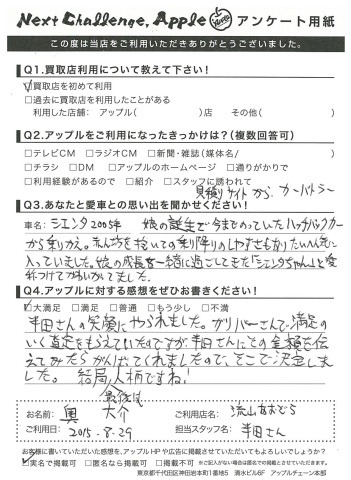 Next Challenge, Apple アンケート用紙
この度は当店をご利用いただきありがとうございました。
Q1.買取店利用について教えて下さい!
☑買取店を初めて利用
□過去に買取店を利用したことがある
利用した店舗: アップル( )店 その他( )
Q2.アップルをご利用になったきっかけは?(複数回答可)
□テレビCM □ラジオCM □新聞・雑誌(媒体名/ )
□チラシ □DM □アップルのホームページ □通りがかりで
□利用経験があるので □紹介 □スタッフに誘われて
見積りサイトから カービュー
Q3.あなたと愛車との思い出をお聞かせください!
車名: シエンタ2005年 娘の誕生で今までのっていたハッチバックカー
から乗りかえ。赤ん坊を抱いての乗り降りのしやすさもありたいへん気に
入っていました。娘の成長を一緒に過ごしてきた「シエンタちゃん」と愛
称つけてかわいがってました。
Q4.アップルに対する感想をぜひお書きください!
☑大満足 □満足 □普通 □もう少し □不満
半田さんの笑顔にやられました。ガリバーさんで満足の
いく査定をもらえていたのですが半田さんにその金額を伝
えてみたらがんばってくれましたので、そこで決定しまし
た。結局人柄ですね!
最後は
お名前: 奥 大介 ご利用店名: 流山おおたか
ご利用日: 2015.8.29 担当スタッフ名: 半田さん
お客様に書いていただいた感想を、アップルHPや広告に掲載させていただいてもよろしいでしょうか?
☑実名で掲載可 □匿名なら掲載可 □掲載不可 ※ご記入がない場合は匿名での掲載とさせていただきます。
東京都千代田区神田岩本町1番地5 清水ビル6F アップルチェーン本部